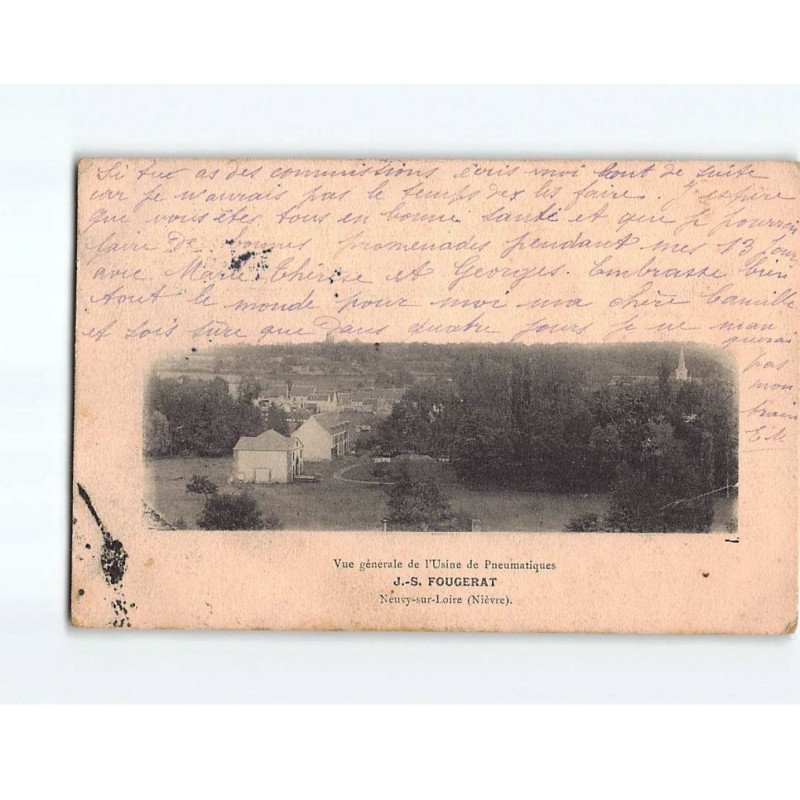 Si tu as des commissions écris moi tout de suite
car je n'aurais pas le temps de les faire. J'espère
que vous êtes tous en bonne santé et que je pourrai
faire de bonnes promenades pendant mes 13 jours
avec Marie-Thérèse et Georges. Embrasse bien
tout le monde pour moi ma chère Camille
et sois sûre que dans quatre jours je ne man
querai
pas
mon
train
E M
Vue générale de l'Usine de Pneumatiques
J.-S. FOUGERAT
Neuvy-sur-Loire (Nièvre).